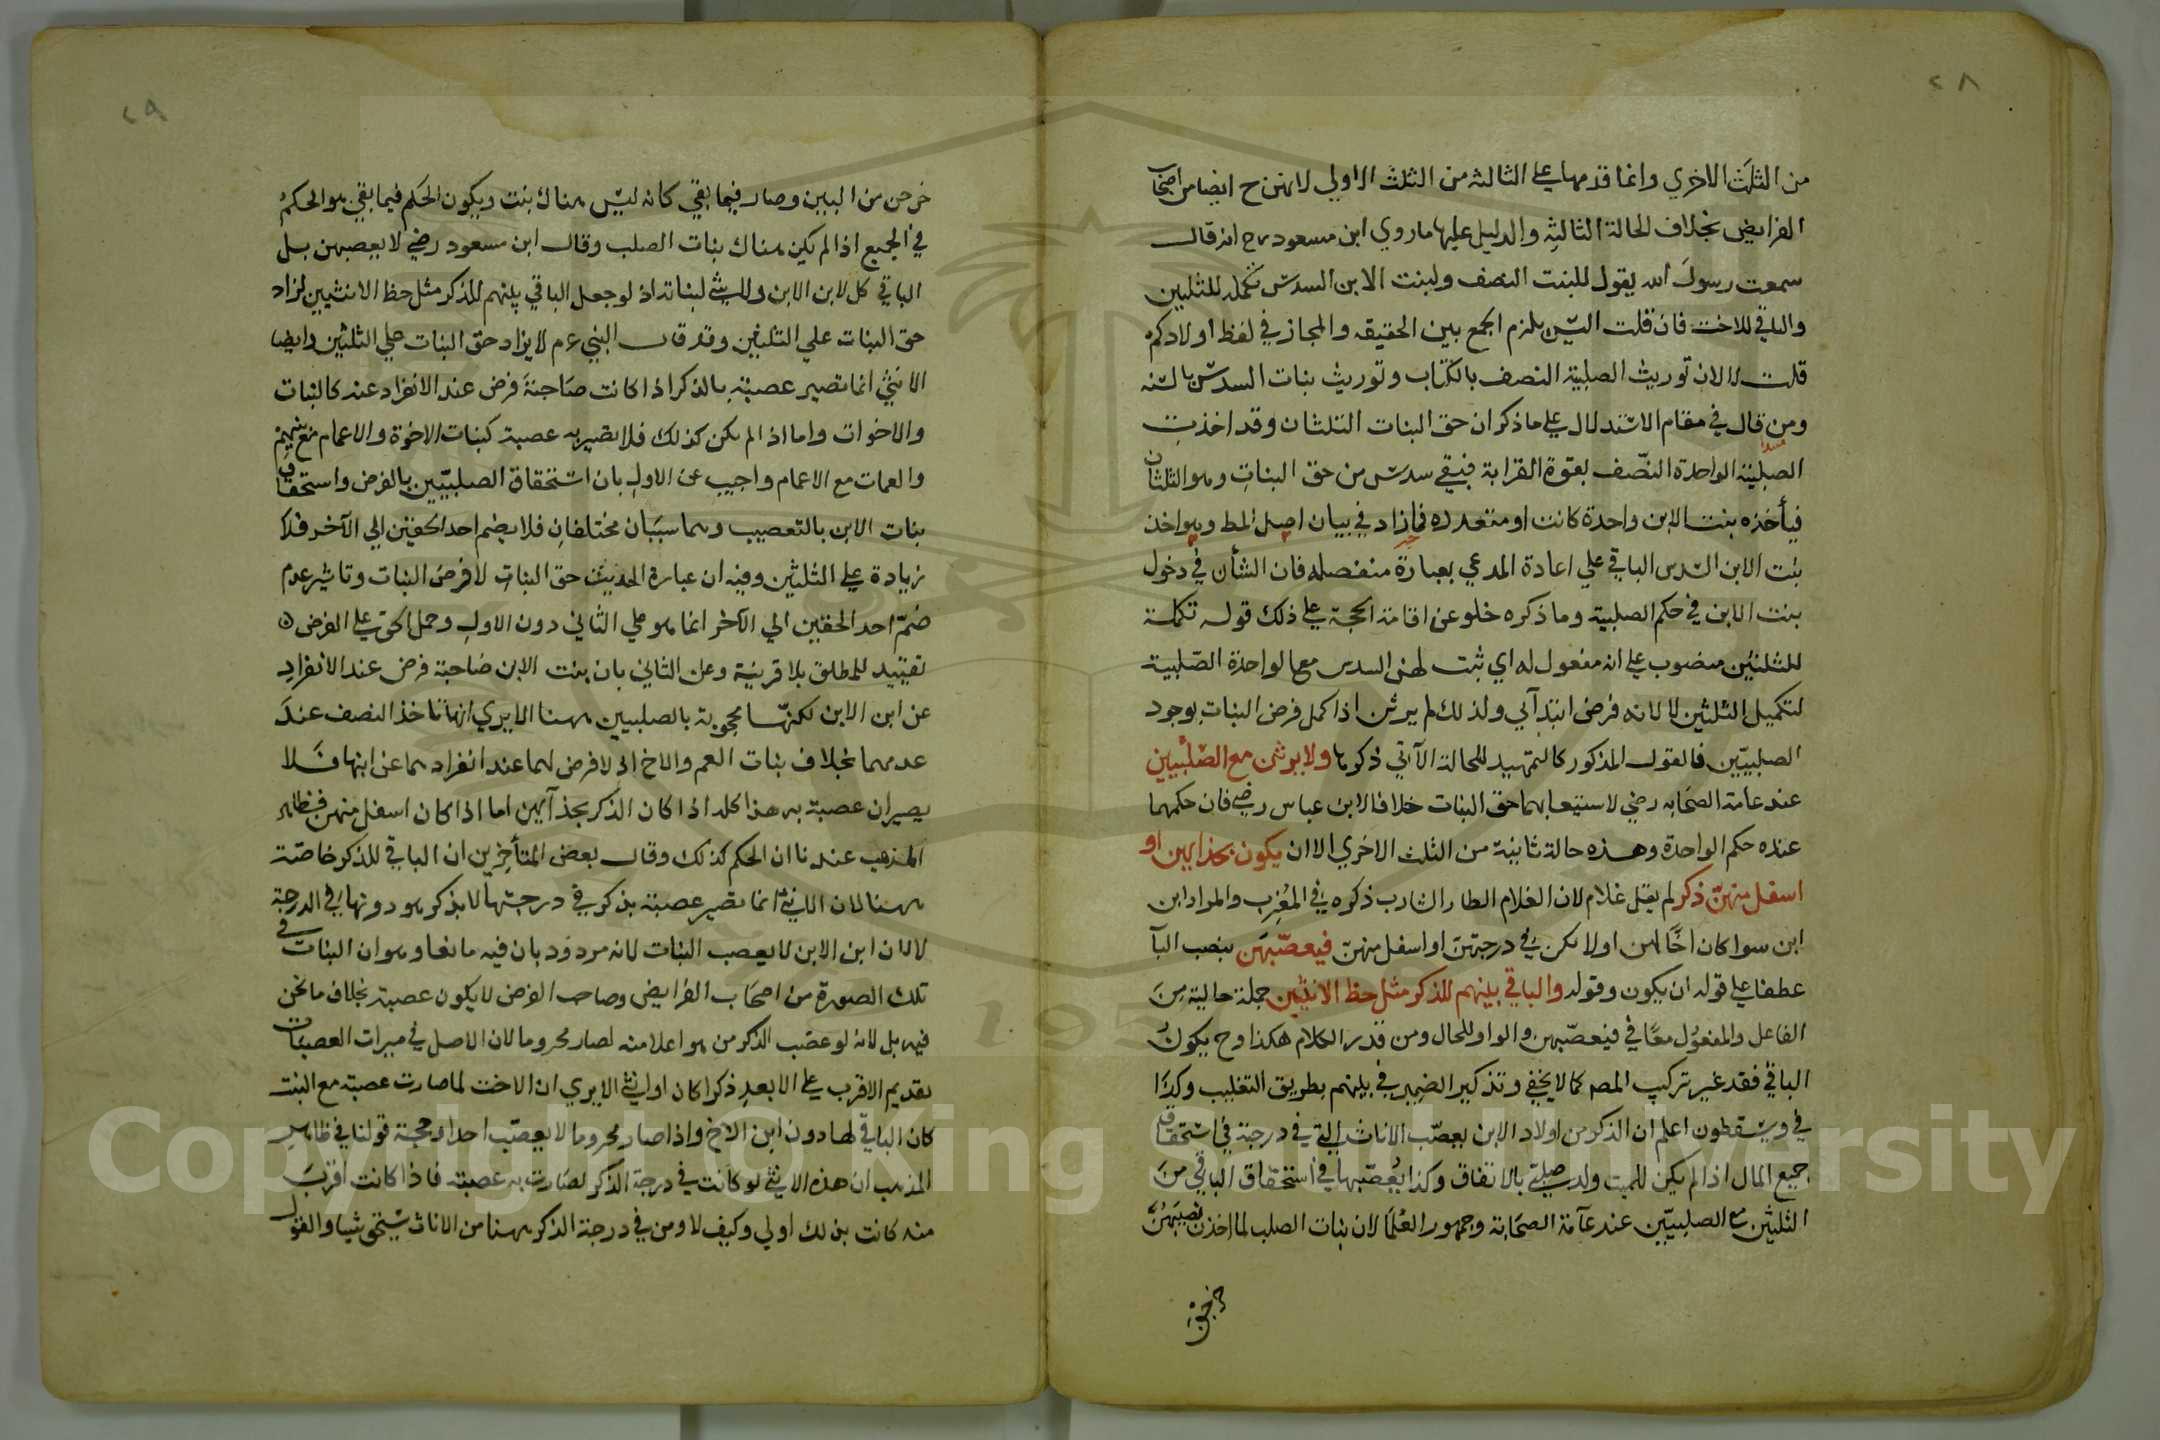 ٢٨
من الثلث الاخري وانما قدمها علي الثالثة من الثلث الاولي لانهن ح ايضا من اصحاب
الفرايض بخلاف الحالة الثالثة والدليل عليها ما روي ابن مسعود رح انه قال
سمعت رسول الله يقول للبنت النصف ولبنت الابن السدس تكملة للثلثين
والباقي للاخت فان قلت اليس يلزم الجمع بين الحقيقه والمجاز في لفظ اولادكم
قلت لا لان توريث الصلبية النصف بالكتاب وتوريث بنات السدس بالسنه
ومن قال في مقام الاستدلال علي ما ذكر ان حق البنات الثلثان وقد اخذت
الصلبية الواحدة النصف بقوة القرابة فبقي سدس من حق البنات وهو الثلثان
فيأخذه بنت الابن واحدة كانت او متعدده فما زاد في بيان اصل المط وهو اخذ
بنت الابن السدس الباقي علي اعادة المدعي بعبارة منفصله فان الشأن في دخول
بنت الابن في حكم الصلبية وما ذكره خلو عن اقامة الحجة علي ذلك قوله تكملة
للثلثين منصوب علي انه مفعول له اي ثبت لهن السدس مع الواحدة الصلبية
لتكميل الثلثين لا لانه فرض ابتدآئي ولذلك لم يرثن اذا كمل فرض البنات بوجود
الصلبيتين فالقول المذكور كالتمهيد للحالة الآتي ذكرها ولا يرثن مع الصلبيتين
عند عامة الصحابه رضي لاستيعابهما حق البنات خلافا لابن عباس رضي فان حكمهما
عنده حكم الواحدة وهذه حالة ثانية من الثلث الاخري الا ان يكون بحذايهن او
اسفل منهن ذكر لم يقل غلام لان الغلام الطار الشارب ذكره في المغرب والمراد ابن
ابن سوا كان اخا لهن اولا يكن في درجتهن او اسفل منهن فيعصبهن بنصب البآ
عطفا علي قوله ان يكون وقوله والباقي بينهم للذكر مثل حظ الانثيين جملة حالية من
الفاعل والمفعول معا في فيعصبهن والواو للحال ومن قدر الكلام هكذا وح يكون
الباقي فقد غير تركيب المصه كما لا يخفي وتذكير الضمير في بينهم بطريق التغليب وكذا
في ويسقطون اعلم ان الذكر من اولاد الابن يعصب الاناث التي في درجة في استحقاق
جميع المال اذا لم يكن للميت ولد صلبي بالاتفاق وكذا يعصبها في استحقاق الباقي من
الثلثين مع الصلبيتين عند عآمة الصحابة وجمهور العلما لان بنات الصلب لما اخذن نصيبهن
خرجن
٢٩
خرجن من البين وصار فيما بقي كانه ليس هناك بنت ويكون الحكم فيما بقي هو الحكم
في الجميع اذا لم يكن هناك بنات الصلب وقال ابن مسعود رضي لا يعصبهن بل
الباقي كل لابن الابن ولا شي لبناته اذ لو جعل الباقي بينهم للذكر مثل حظ الانثيين لزاد
حق البنات علي الثلثين وقد قال النبي عم لا يزاد حق البنات علي الثلثين وايضا
الانثي انما تصير عصبة بالذكر اذا كانت صاحبة فرض عند الانفراد عنه كالبنات
والاخوات واما اذا لم يكن كذلك فلا تصير به عصبة كبنات الاخوة والاعمام مع بنيهم
والعمات مع الاعمام واجيب عن الاول بان استحقاق الصلبيتين بالفرض واستحقاق
بنات الابن بالتعصيب وهما سببان مختلفان فلا يضم احد الحقين الي الآخر فلا
زيادة علي الثلثين وفيه ان عبارة الحديث حق البنات لا فرض البنات وتاثير عدم
ضم احد الحقين الي الآخر انما هو علي الثاني دون الاول وحمل الحق علي الفرض
تقييد للمطلق بلا قرينة وعن الثاني بان بنت الابن صاحبة فرض عند الانفراد
عن ابن الابن لكنها محجوبة بالصلبيتين ههنا الا يري انها تاخذ النصف عند
عدمهما بخلاف بنات العم والاخ اذ لا فرض لهما عند انفرادهما عن ابنها فلا
يصيران عصبة به هذا كله اذا كان الذكر بحذآيهن اما اذا كان اسفل منهن فظاهر
المذهب عندنا ان الحكم كذلك وقال بعض المتأخرين ان الباقي للذكر خاصة
ههنا لان الانثي انما تصير عصبة بذكر في درجتها لا بذكر هو دونها في الدرجة
لا لان ابن الابن لا يعصب البنات لانه مردود بان فيه مانعا وهو ان البنات في
تلك الصورة من اصحاب الفرايض وصاحب الفرض لا يكون عصبة بخلاف ما نحن
فيه بل لانه لو عصب الذكر من هو اعلا منه لصار محروما لان الاصل في ميراث العصبات
تقديم الاقرب علي الابعد ذكرا كان او انثي الا يري ان الاخت لما صارت عصبة مع البنت
كان الباقي لها دون ابن الاخ واذا صار محروما لا يعصب احدا وحجة قولنا في ظاهر
المذهب ان هذه الانثي لو كانت في درجة الذكر لصارت به عصبة فاذا كانت اقرب
منه كانت بذلك اولي وكيف لا ومن في درجة الذكر ههنا من الاناث يستحق شيا والقول
Copyright © King Saud University
1957